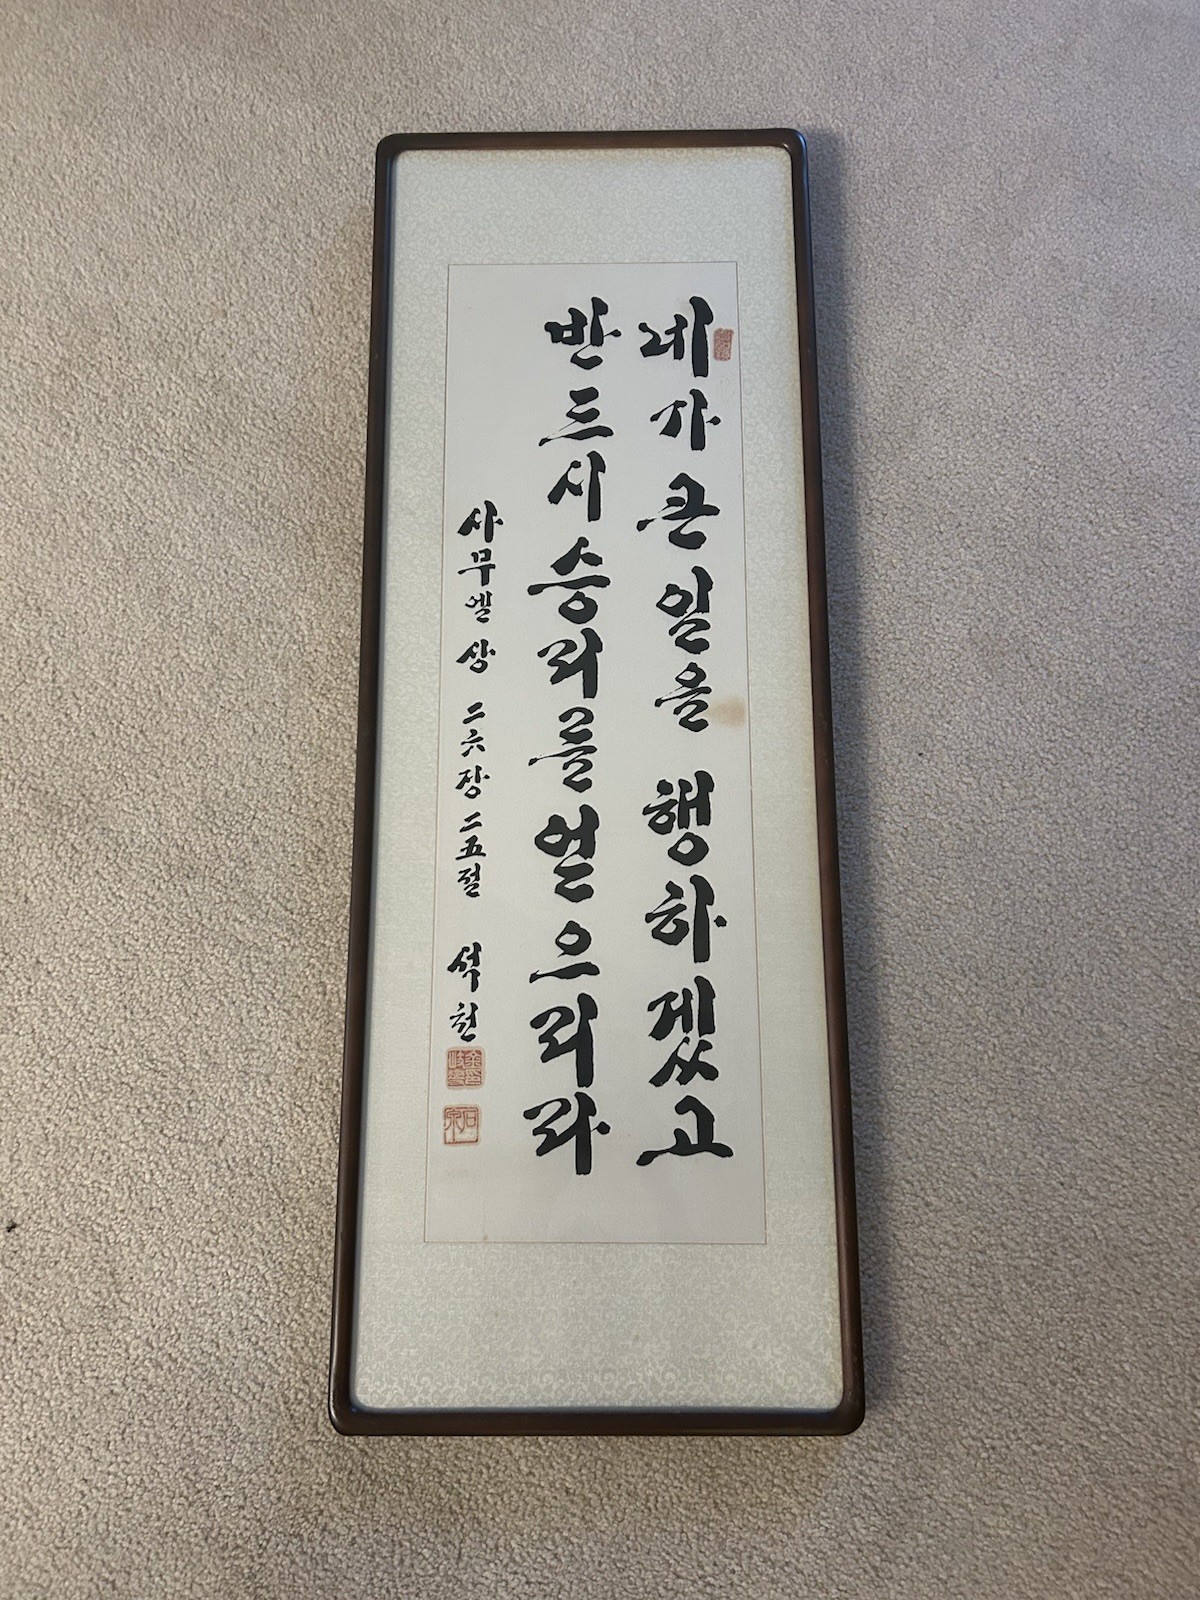 네가 큰 일을 행하겠고
반드시 승리를 얻으리라
사무엘 상 二六장 二五절 석천